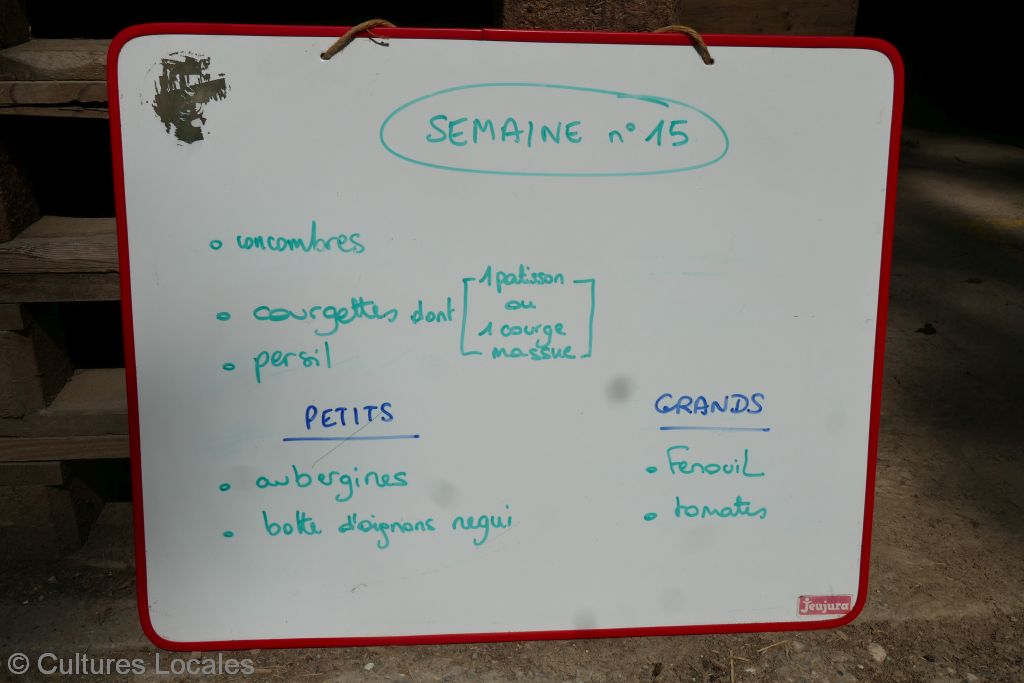 SEMAINE n° 15
• concombres
• courgettes dont
1 patisson
ou
1 courge
massue
• persil
PETITS
• aubergines
• botte d'oignons negui
GRANDS
• Fenouil
• tomates
Jeujura
© Cultures Locales